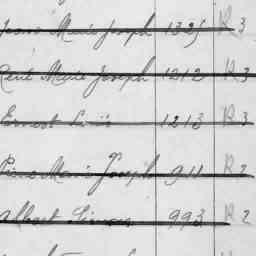 Jean Marie Joseph 1325 R 3
René Marie Joseph 1212 R 3
Ernest Louis 1213 R 3
Pierre Marie Joseph 911 R 2
Albert Simon 993 R 2